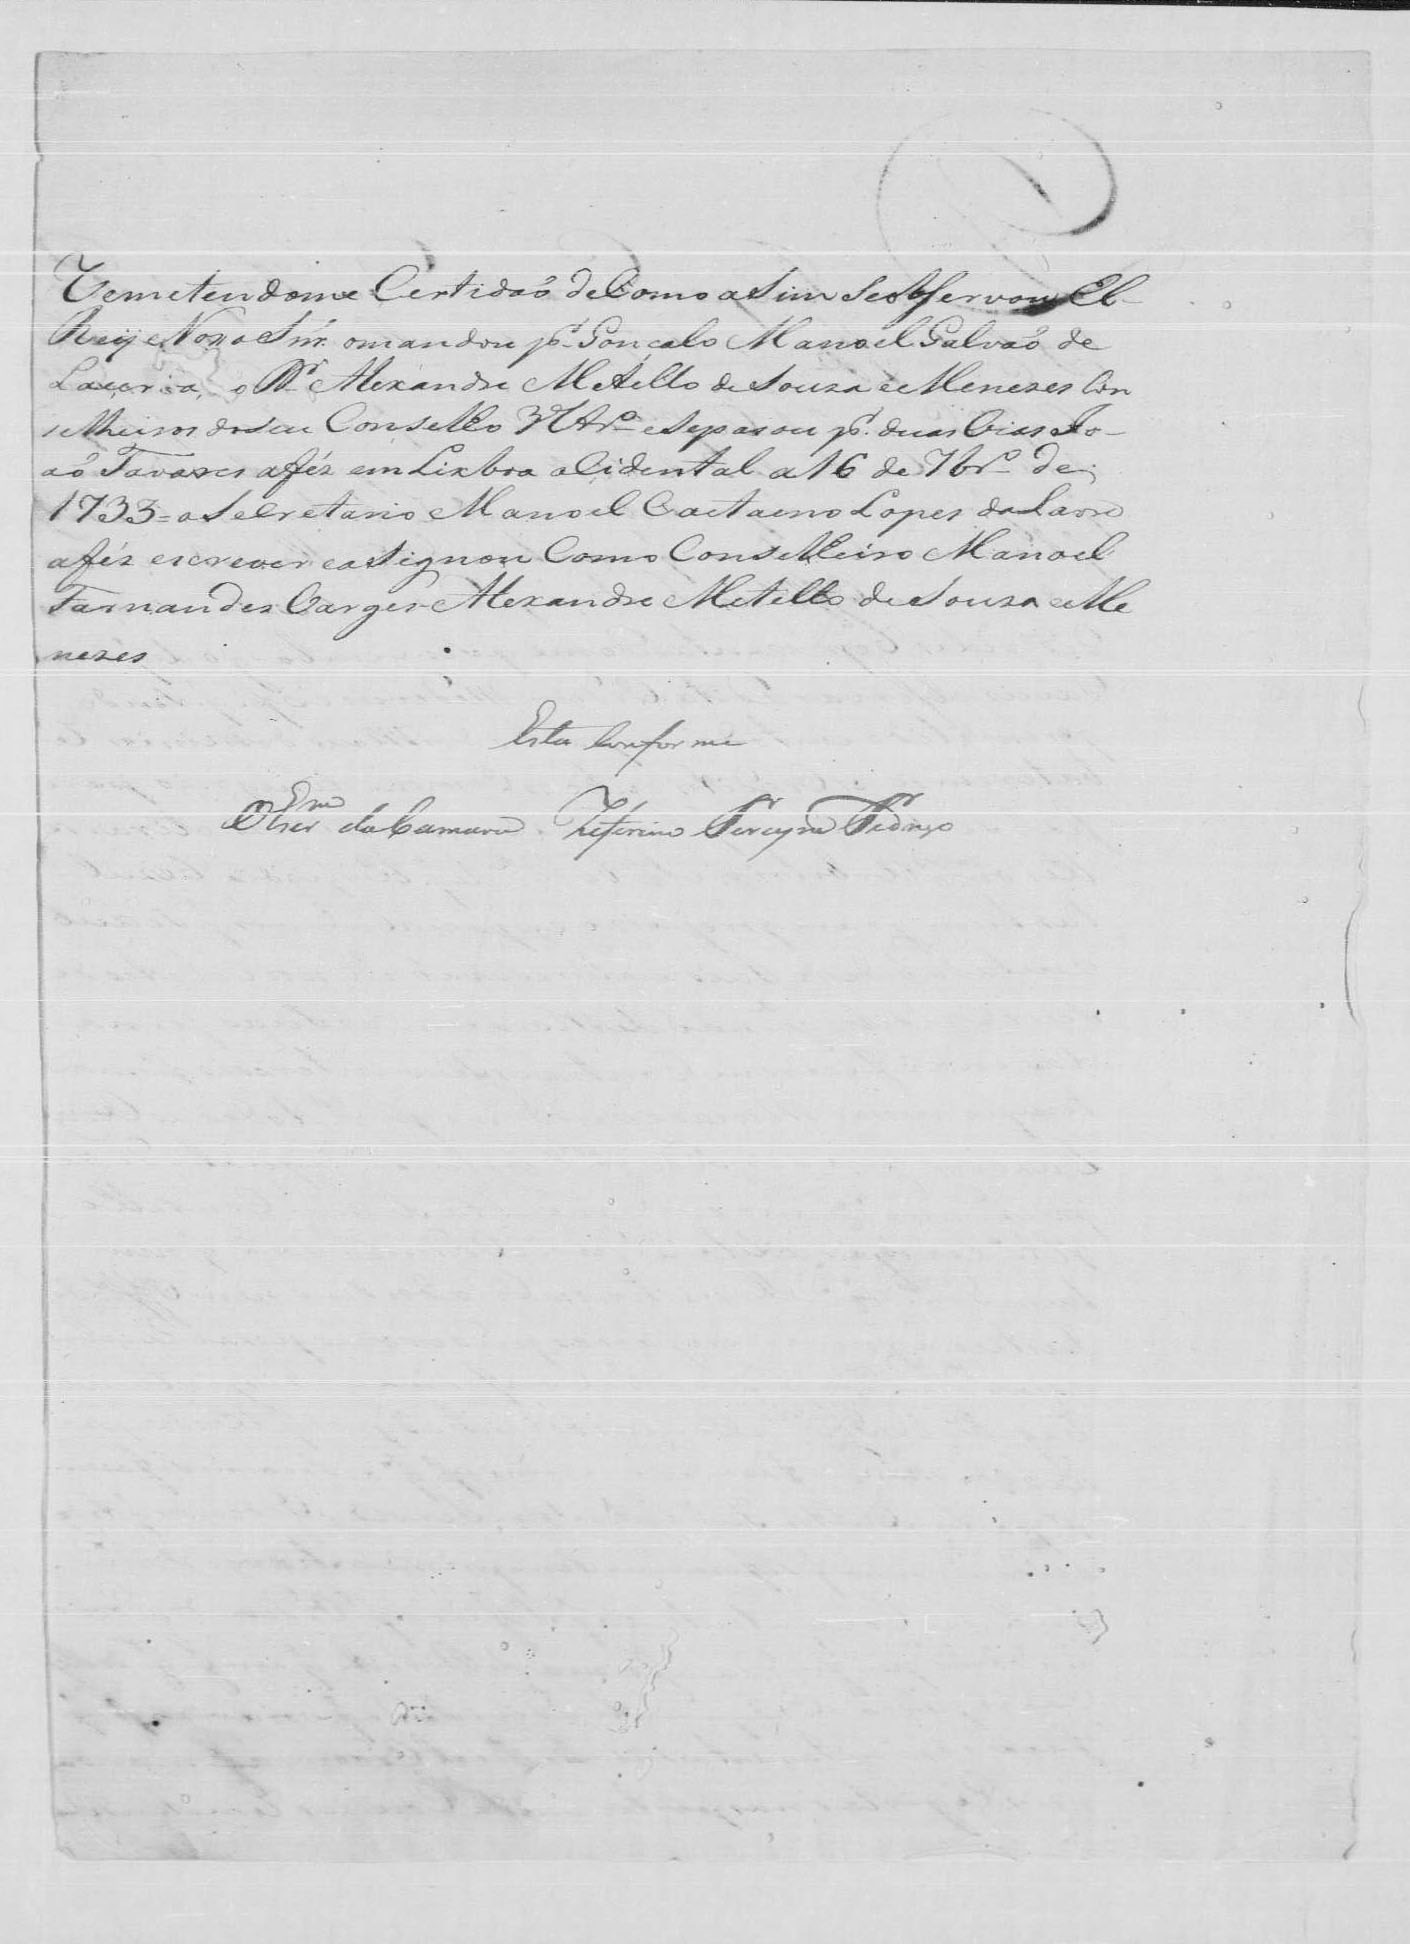 Remetendome Certidaõ deComo aSim SeobServou El-
Reij eNoso Snr. omandou pr. Gonçalo Manoel Galvaõ de
Lacerda, o Dr. Alexandre Metello de Souza eMenezes Con
selheiros doseu Consello Vltro. eSepasou pr. duas Vias Jo-
aõ Tavares afés em Lixboa ocidental a 16 de 7brº. de
1733= oSecretario Manoel Caetaeno Lopes da Lavre
afés escrever easignou Como Conselleiro Manoel
Farnandez Varges = Alexandre Metello de Souza eMe
nezes
Esta Conforme
OEscrm da Camara Zeferino Pereyra